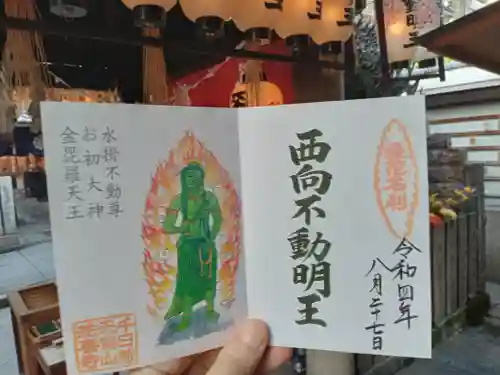 西向不動明王
令和四年
八月二十七日
水掛不動尊
お初大神
金毘羅天王
千日前
天龍山
法善寺